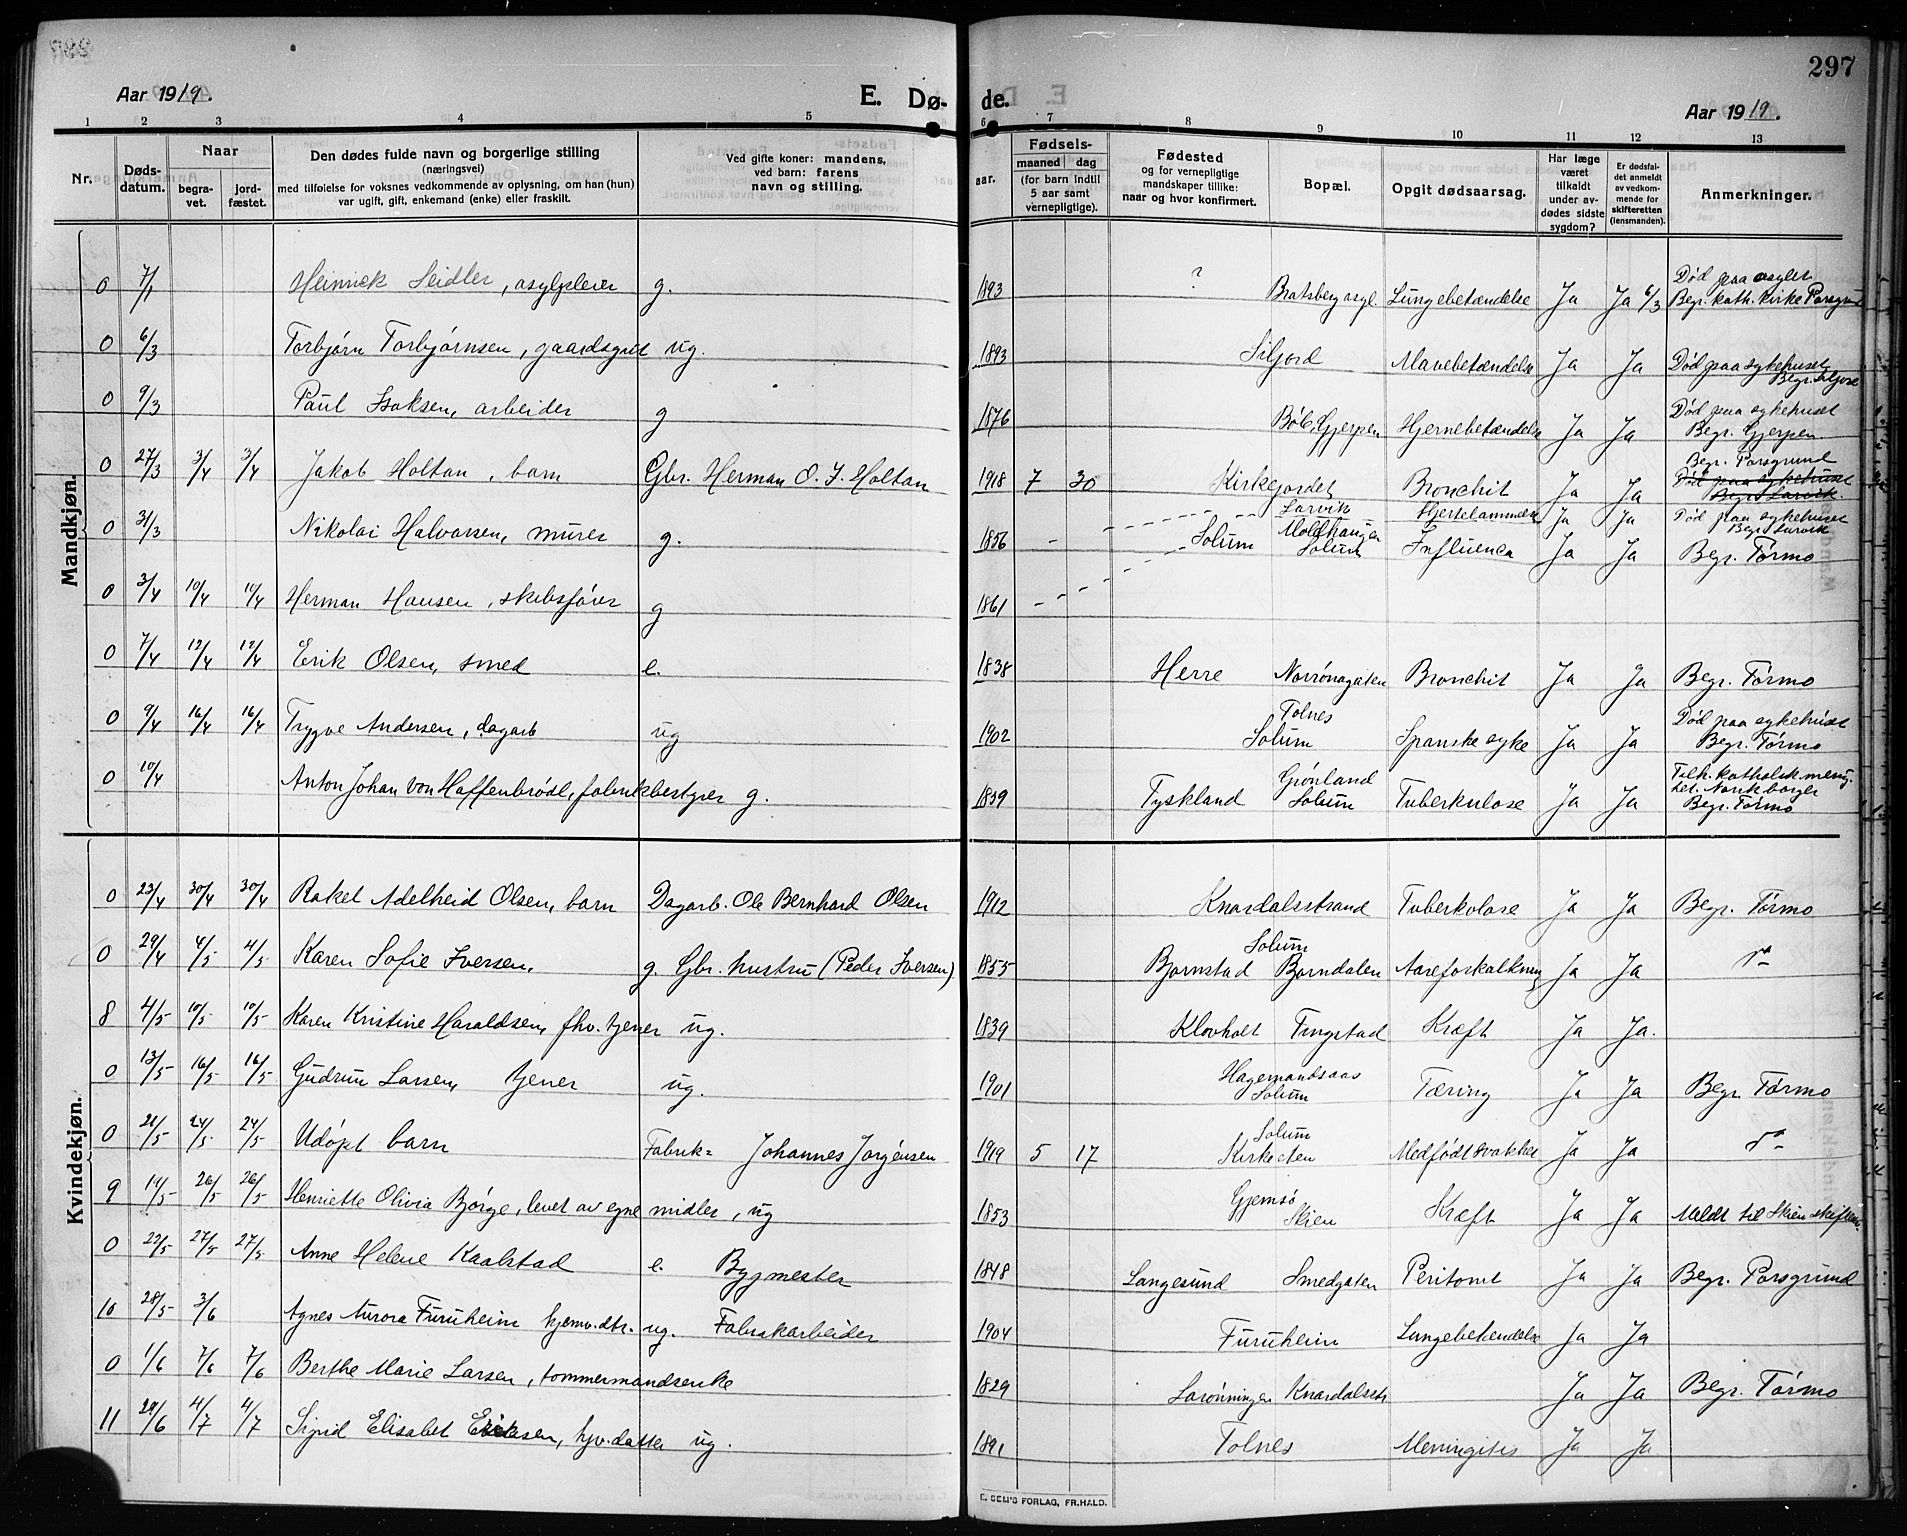 297
Aar 1919.
E. Dø-
de.
Aar 1919.
1 2 3 4 5 6 7 8 9 10 11 12 13
Nr.
Døds-
datum.
Naar
begra-
vet.
jord-
fæstet.
Den dødes fulde navn og borgerlige stilling
(næringsvei)
med tilføielse for voksnes vedkommende av oplysning, om han (hun)
var ugift, gift, enkemand (enke) eller fraskilt.
Ved gifte koner: mandens,
ved barn: farens
navn og stilling.
Fødsels-
aar.
maaned dag
(for barn indtil
5 aar samt
vernepligtige).
Fødested
og for vernepligtige
mandskaper tillike:
naar og hvor konfirmert.
Bopæl.
Opgit dødsaarsag.
Har læge
været
tilkaldt
under av-
dødes sidste
sygdom?
Er dødsfal-
det anmeldt
av vedkom-
mende for
skifteretten
(lensmanden).
Anmerkninger.
Mandkjøn.
0 7/1 Heinrick Seidler, asylpleier g. 1893 ? Bratsberg asyl Lungebetændelse Ja Ja 6/3 Død paa asylet
Begr. kath. kirke Porsgrund
0 6/3 Torbjørn Torbjørnsen, gaardsgut ug. 1893 Siljord Mavebetændelse Ja Ja Død paa sykehuset
Begr. Siljord
0 9/3 Paul Isaksen, arbeider g 1876 Bøle, Gjerpen Hjernebetændelse Ja Ja Død paa sykehuset
Begr. Gjerpen
0 27/3 3/4 3/4 Jakob Holtan, barn Gbr. Herman O. J. Holtan 1918 7 30 Kirkejordet Bronchit Ja Ja Begr. Porsgrund
Død paa sykehuset
Begr. Larvik.
0 31/3 Nikolai Halvorsen, murer g. 1856 - Larvik Hjertelammelse Ja Ja Død paa sykehuset
Begr. Larvik
0 3/4 10/4 10/4 Herman Hansen, skibsfører g 1861 - Solum Moldhaugen
Solum Influenca Ja Ja Begr. Tørmo
0 7/4 12/4 12/4 Erik Olsen, smed e. 1838 Herre Norrønagaten Bronchit Ja Ja Begr. Tørmo
0 9/4 16/4 16/4 Trygve Andersen, dagarb ug 1902 Tolnes
Solum Spanske syke Ja Ja Død paa sykehuset
Begr. Tørmo
0 10/4 Anton Johan von Haffenbrödl, fabrikbestyrer g. 1839 Tyskland Grønland
Solum Tuberkulose Ja Ja Tilh. katholsk menig-
het. Norsk borger
Begr. Tørmo
Kvindekjøn.
0 23/4 30/4 30/4 Rakel Adelheid Olsen, barn Dagarb. Ole Bernhard Olsen 1912 Knardalsstrand Tuberkolose Ja Ja Begr. Tørmo
0 29/4 4/5 4/5 Karen Sofie Iversen, g. Gbr. hustru (Peder Iversen) 1855 Bjørnstad Solum
Borndalen Aareforkalkning Ja Ja do
8 4/5 10/5 10/5 Karen Kristine Haraldsen, fhv. tjener ug. 1839 Klovholt Tingstad Kræft Ja Ja.
0 13/5 16/5 16/5 Gudrun Larsen, tjener ug. 1901 Hagemandsaas
Solum Tæring Ja Ja Begr. Tørmo
0 21/5 24/5 24/5 Udøpt barn Fabrik= Johannes Jørgensen 1919 5 17 Solum
Kirkeeten Medfødt svakhet Ja Ja do
9 19/5 26/5 26/5 Henriette Olivia Bjørge, levet av egne midler, ug 1853 Gjemsø
Skien Kræft Ja Ja Meldt til Skien skifteret
0 22/5 27/5 27/5 Anne Helene Kaalstad e. Bygmester 1848 Langesund Smedgaten Peritonit Ja Ja Begr. Porsgrund
10 28/5 3/6 Agnes Aurora Furuheim hjemv. dtr. ug. Fabrikarbeider 1904 Furuheim Lungebetendelse Ja Ja
0 1/6 7/6 7/6 Berthe Marie Larsen, tømmermandsenke 1829 Larønningen Knardalsstr. Ja Ja Begr. Tørmo
11 29/6 4/7 4/7 Sigrid Elisabet Eriksen, hjv. datter ug. 1891 Tolnes Meningitis Ja Ja
E. SEM'S FORLAG, FR.HALD.